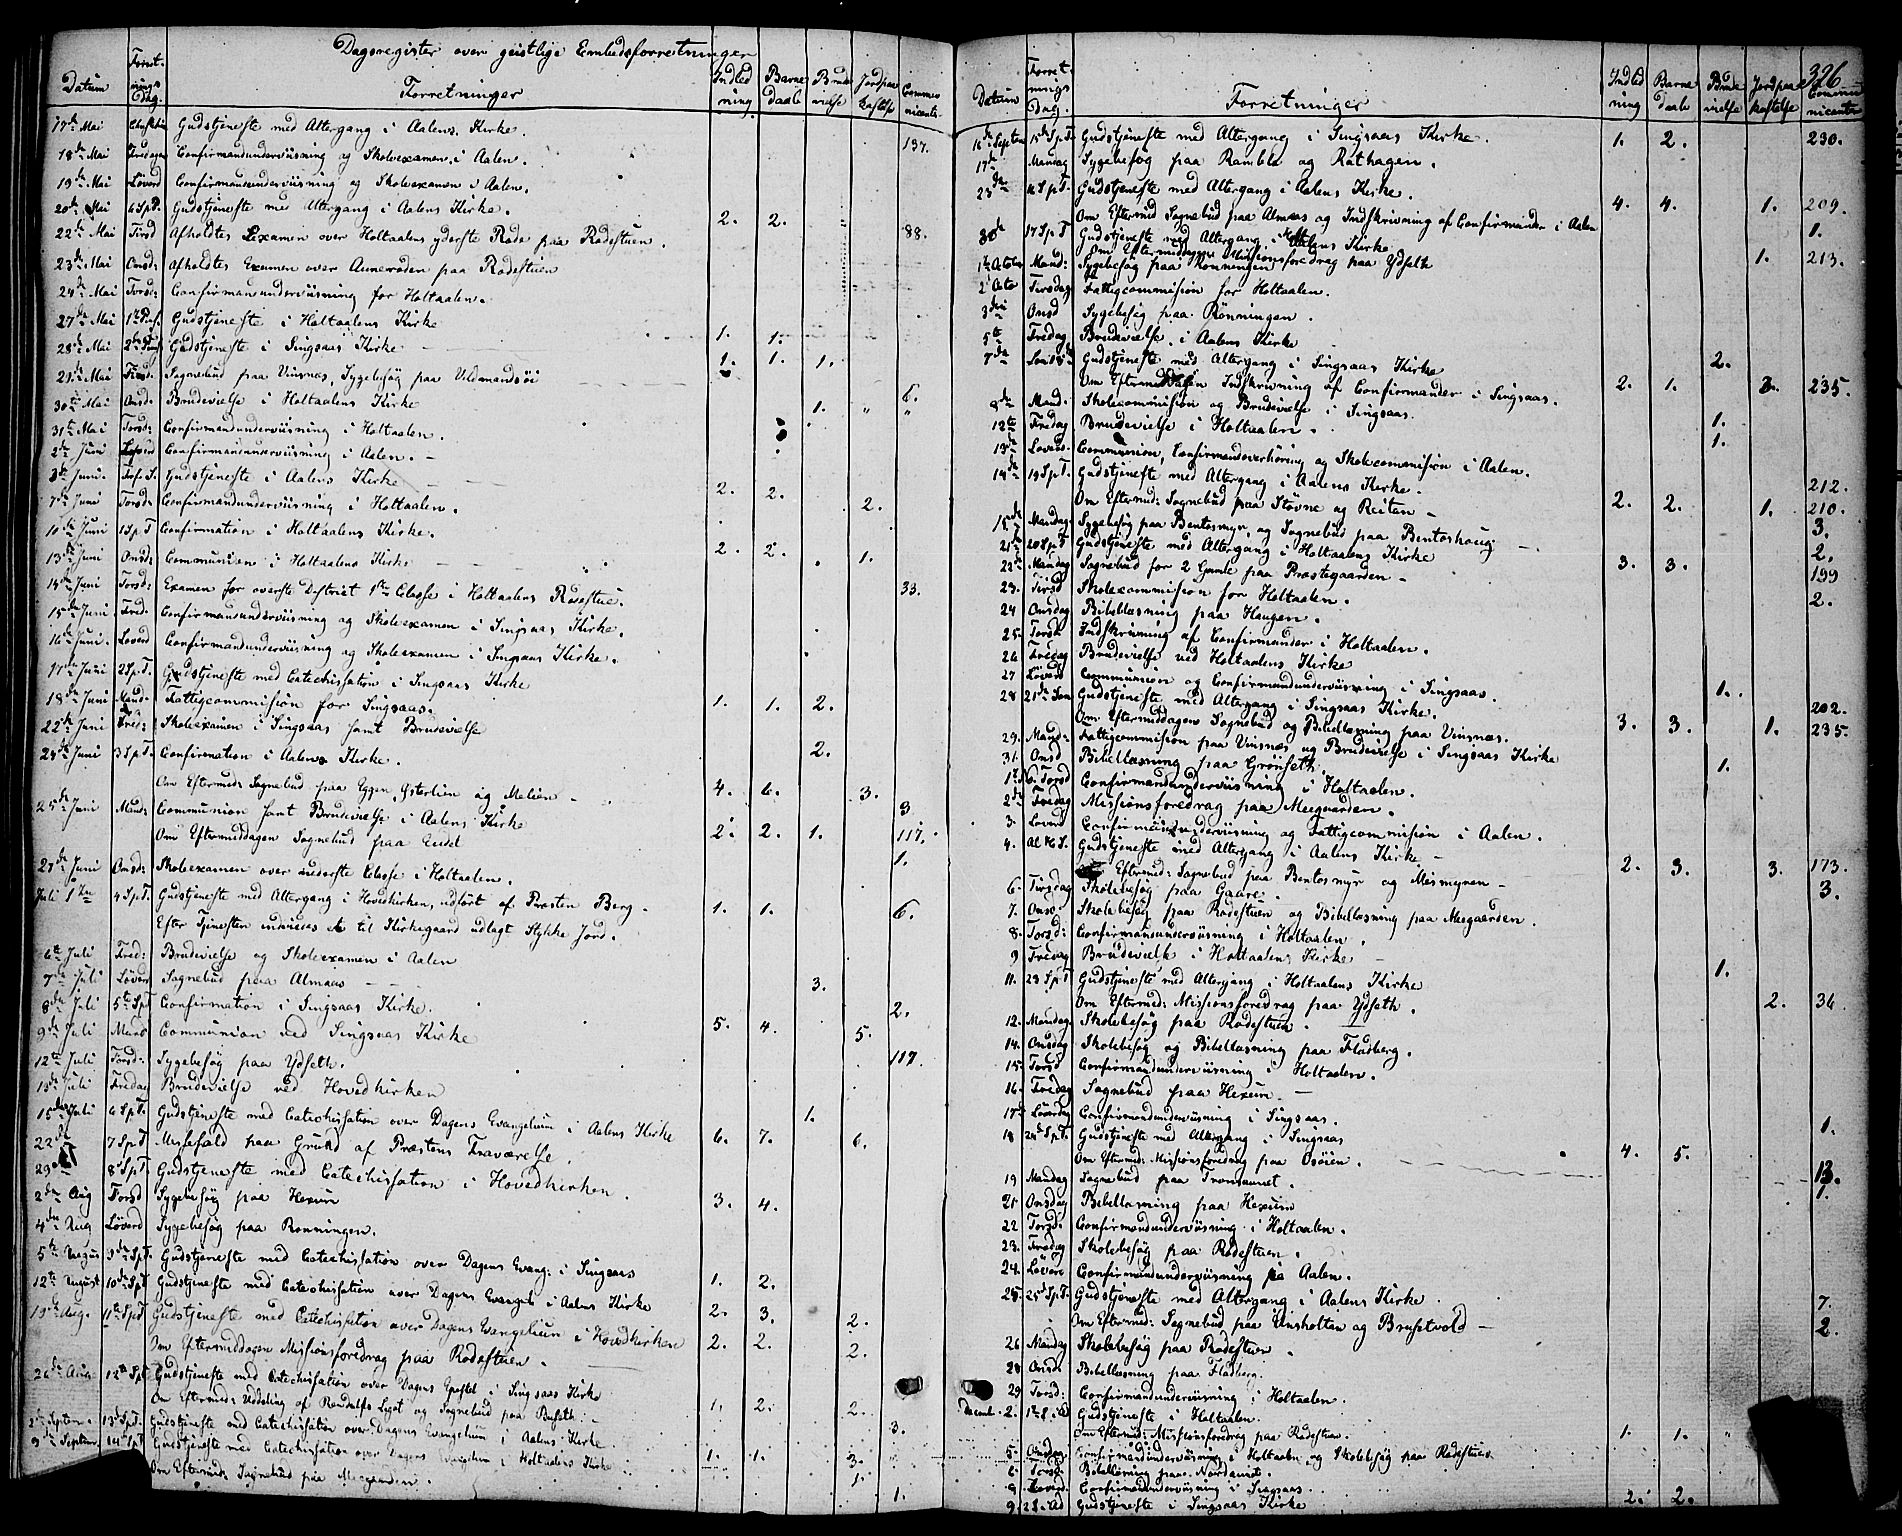 Dagsregister over geistlige Embedsforretninger
Datum Forretnings Dag. Forretninger Indledning Barnedaab Brudevielse Jordpaakastelse Communicanter
17de Mai Gudstjeneste med Altergang i Aalens Kirke. 137.
18de Mai Fredagen Confirmandunderviisning og Skoleexamen i Aalen.
19de Mai Löverd Confirmandunderviisning og Skoleexamen i Aalen.
20de Mai 6 S.p.P. Gudstjeneste med Altergang i Aalens Kirke. 2. 2. 88.
22de Mai Tirsd Afholdtes Examen over Holtaalens yderste Rode paa Rodestuen.
23de Mai Onsd: Afholdtes Examen over Auneroden paa Rodestuen
24de Mai Torsd: Confirmandunderviisning for Holtaalen.
27de Mai 1ste Pinsd. Gudstjeneste i Holtaalens Kirke 1. 1.
28de Mai 2den Pinsd Gudstjeneste i Singsaas Kirke 1. 1. 1.
29de Mai Tirsd. Sognebud paa Vinsnæs, Sygebesög paa Vildmandsöi 6.
30te Mai Onsd. Brudevielse i Holtaalens Kirke 1. " "
31te Mai Torsd: Confirmandunderviisning i Holtaalen.
2de Juni Löverd Confirmandunderviisning i Aalen.
3die Juni Gudstjeneste i Aalens Kirke 2. 2. 2.
7de Juni Torsd: Confirmandunderviisning i Holtaalen.
10de Juni 1 S.p.T Confirmation i Holtaalens Kirke. 2. 2. 1.
13de Juni Onsd: Communion i Holtaalens Kirke 33.
14de Juni Torsd: Examen for överste District 1ste Classe i Holtaalens Rodestue.
15de Juni Fred. Confirmandunderviisning og Skoleexamen i Singsaas Kirke.
16de Juni. Löverd Confirmandunderviisning og Skoleexamen i Singsaas Kirke.
17de Juni 2 S.p.T. Gudstjeneste med Catechisation i Singsaas Kirke 1. 1. 2.
18de Juni Mand. Fattigcommision for Singsaas.
22de Juni Fred: Skoleexamen i Singsaas samt Brudevielse 2.
24de Juni 3 S.p.T. Confirmation i Aalens Kirke. 4. 6. 3.
Om Eftermid: Sognebud paa Eggen, Österlien og Melien 3.
25de Juni Mand: Communion samt Brudevielse i Aalens Kirke 2. 2. 1. 117.
Om Eftermiddagen Sognebud paa Endal 1.
27de Juni Onsd: Skoleexamen over nederste Classe i Holtaalen.
Juli 1ste 4 S.p.T. Gudstjeneste med Altergang i Hovedkirken, udfört af Præsten Berg. 1. 1. 6.
Efter Tjenesten indviedes et til Kirkegaard udlagt Stykke Jord.
6te Juli Fred: Brudevielse og Skoleexamen i Aalen 3.
7de Juli Löverd Sognebud paa Almaas 2.
8de Juli 5te S.p.T Confirmation i Singsaas Kirke. 5. 4. 5.
9de Juli Mand Communion ved Singsaas Kirke 117.
12te Juli Torsd: Sygebesög paa Ydseth.
13de Juli Fredag Brudevielse ved Hovedkirken 1.
15de Juli 6 S.p.T. Gudstjeneste med Catechisation over Dagens Evangelium i Aalens Kirke 6. 7. 6.
22de 7 S.p.T Messefald paa Grund af Præstens Fraværelse.
29de 8 S.p.T Gudstjeneste med Catechisation i Hovedkirken. 3. 4.
2de Aug Torsd Sygebesög paa Hexum
4de Aug Löverd Sygebesög paa Rönningen.
5te August 9de S.p.T. Gudstjeneste med Catechisation over Dagens Evang: i Singsaas 1. 2.
12te August 10de S.p.T Gudstjeneste med Catechisation over Dagens Evangel: i Aalens Kirke 2. 3. 2.
19de Aug. 11te S.p.T Gudstjeneste med Catechisation over Dagens Evangelium i Hovedkirken 2. 2. 2.
Om Eftermiddagen Missionsforedrag paa Rodestuen.
26de Aug 12te S.p.T Gudstjeneste med Catechisation over Dagens Epistel i Singsaas Kirke 1. 2. 2.
Om Eftermid: Uddeling af Legat og Sognebud paa 3.
2de Septem. 13de S.p.T Gudstjeneste med Catechisation over Dagens Evangelium i Aalens Kirke. 1. 1. 3.
9de Septem 14de S.p.T Gudstjeneste med Catechisation over Dagens Evangelium i Holtaalens Kirke 1.
Om Efterm: Sognebud paa Meegaarden. 1.
326
Datum Forretnings Dag. Forretninger Indledning Barnedaab Brudevielse Jordpaakastelse Communicanter
16de Septem 15de S.p.T. Gudstjeneste med Altergang i Singsaas Kirke. 1. 2. 230.
17de Mandag Sygebesög paa Ramblo og Kathagen.
23de 16 S.p.T. Gudstjeneste med Altergang i Aalens Kirke. 4. 4. 1. 209.
Om Eftermid Sognebud paa Almaas og Indskrivning af Confirmander i Aalen 1.
30te 17 S.p.T Gudstjeneste med Altergang i Holtaalens Kirke 1. 213.
Om Eftermiddagen Missionsforedrag paa Ydseth
1ste October Mand: Sygebesög paa Rönningen
2 Octo Tirsdag Fattigcommision for Holtaalen.
3die Onsd Sygebesög paa Rönningen.
5te Fredag Brudevielse i Aalens Kirke 2.
7de Gudstjeneste med Altergang i Singsaas Kirke 2. 1. 2. 235.
Om Eftermiddagen Indskrivning af Confirmander i Singsaas.
8de Mand. Skolecommision og Brudevielse i Singsaas. 1.
12te Fredag Brudevielse i Holtaalen. 1.
13de Löverd. Communion, Confirmandoverhöring og Skolecommision i Aalen. 212.
14de 19 S.p.T. Gudstjeneste med Altergang i Aalens Kirke. 2. 2. 1. 210.
Om Eftermid: Sognebud paa Stövne og Reitan 3.
15de Mandag. Sygebesög paa Bentosmyr, og Sognebud paa Bentoshoug 2.
21de 20 S.p.T Gudstjeneste med Altergang i Holtaalens Kirke 3. 3. 199
22de Mandag Sognebud for 2 Gamle paa Præstegaarden 2.
23. Tirsd Skolecommision for Holtaalen.
24 Onsdag Bibellæsning paa Haugen.
25. Torsd Indskrivning af Confirmander i Holtaalen.
26 Fredag Brudevielse ved Holtaalens Kirke 1.
27 Löverd Communion og Confirmandunderviisning i Singsaas. 202.
28 21de Gudstjeneste med Altergang i Singsaas Kirke. 3. 3. 1. 235.
Om Eftermiddagen Sognebud og Bibellæsning paa Vinsnæs.
29. Mand: Fattigcommision paa Vinsnæs og Brudevielse i Singsaas Kirke 1.
31. Onsd Bibellæsning paa Grönseth.
1ste Nov. Torsd Confirmandunderviisning i Holtaalen.
2de Fredag Missionsforedrag paa Meegaarden.
3. Löverd Confirmandunderviisning og Fattigcommision i Aalen.
4. Al. H. S. Gudstjeneste med Altergang i Aalens Kirke 2. 3. 3. 173.
Om Eftermid: Sognebud paa Bentosmyr og Mosmyren 3.
6. Tirsdag Skolebesög paa Gaare.
7. Onsd. Skolebesög paa Rodestuen og Bibellæsning paa Meegaarden.
8. Torsd: Confirmandunderviisning i Holtaalen.
9 Fredag Brudevielse i Holtaalens Kirke 1.
11. 23 S.p.T Gudstjeneste med Altergang i Holtaalens Kirke 2. 36.
Om Eftermid: Missionsforedrag paa Ydseth.
12. Mandag Skolebesög paa Rodestuen.
14. Onsdag Skolebesög og Bibellæsning paa Fladberg.
15. Torsd Confirmandunderviisning i Holtaalen.
16. Fredag Sognebud paa Hexum. 1.
17. Löverdag Confirmandunderviisning i Singsaas.
18 24de S.p.T. Gudstjeneste med Altergang i Singsaas 4. 5. 13.
Om Eftermid: Missionsforedrag paa Osöien.
19 Mandag Sognebud paa Tromaunet. 1.
21 Onsdag Bibellæsning paa Hexum
22 Torsd. Confirmandunderviisning i Holtaalen.
23. Fredag Skolebesög paa Rodestuen.
24. Löverd Confirmandunderviisning i Aalen.
25. 25de S.p.T. Gudstjeneste med Altergang i Aalens Kirke 7.
Om Eftermid: Sognebud paa Unsholten og Brusetvold 2.
26 Mandag Skolebesög paa Rodestuen.
28 Onsd. Bibellæsning paa Fladberg.
29 Torsd: Confirmandunderviisning i Holtaalen.
Decemb. 2. 1ste S. i Ad Gudstjeneste i Holtaalen. 1. 1. "
Om Eftermid: Missionsforedrag paa Rodestuen.
5. Onsdag Confirmandunderviisning i Holtaalen og Skolebesög paa Rodestuen
6. Torsd. Bibellæsning paa Nordaunet.
8 Löverd. Confirmandunderviisning i Singsaas.
9. 2 S. Ad Gudstjeneste i Singsaas Kirke 2. 2.